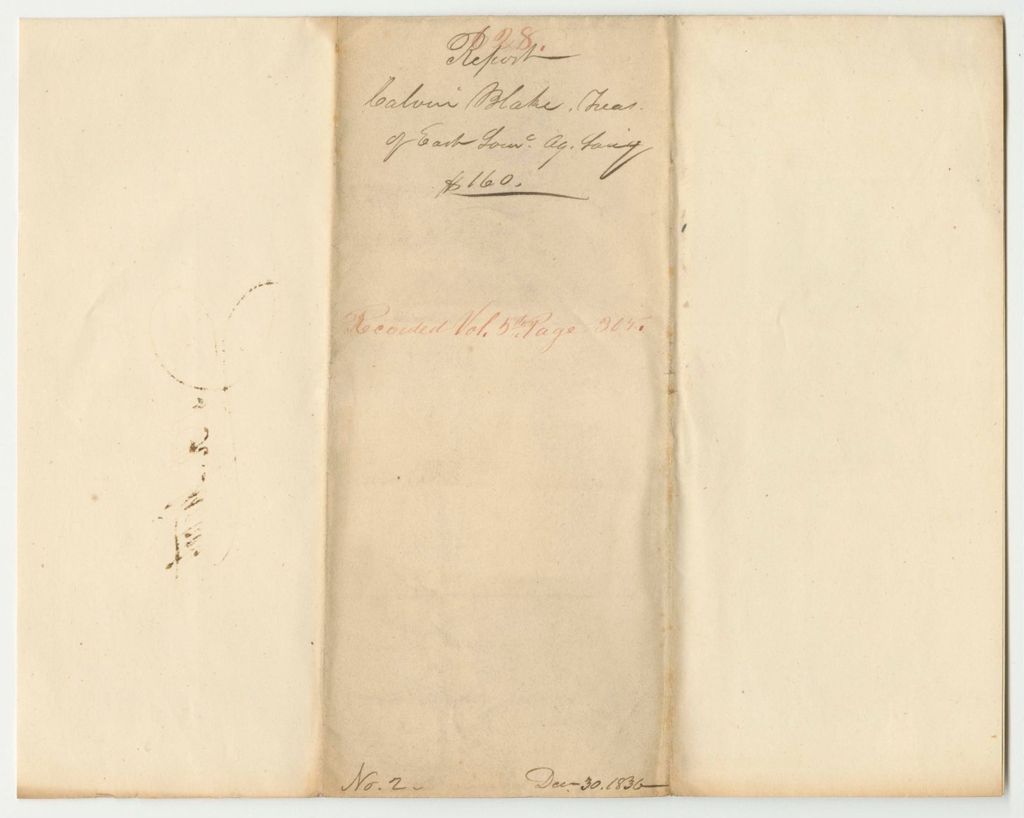 128.
Report
Calvin Blake, Treas.
of East Som. Ag. Socy
$160.
Recorded Vol. 5th Page 305.
No. 2.
Dec 30. 1836